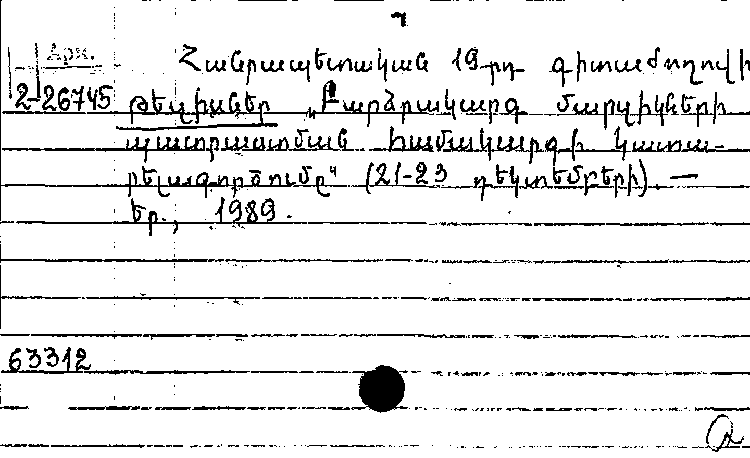 Դ
Արխ.
Հանրապետական 19-րդ գիտաժողովի
2-26745 թեզիսներ „Բարձրակարգ մարզիկների
պատրաստման համակարգի կատա-
րելագործումը" (21-23 դեկտեմբերի). —
Եր., 1989.
63312